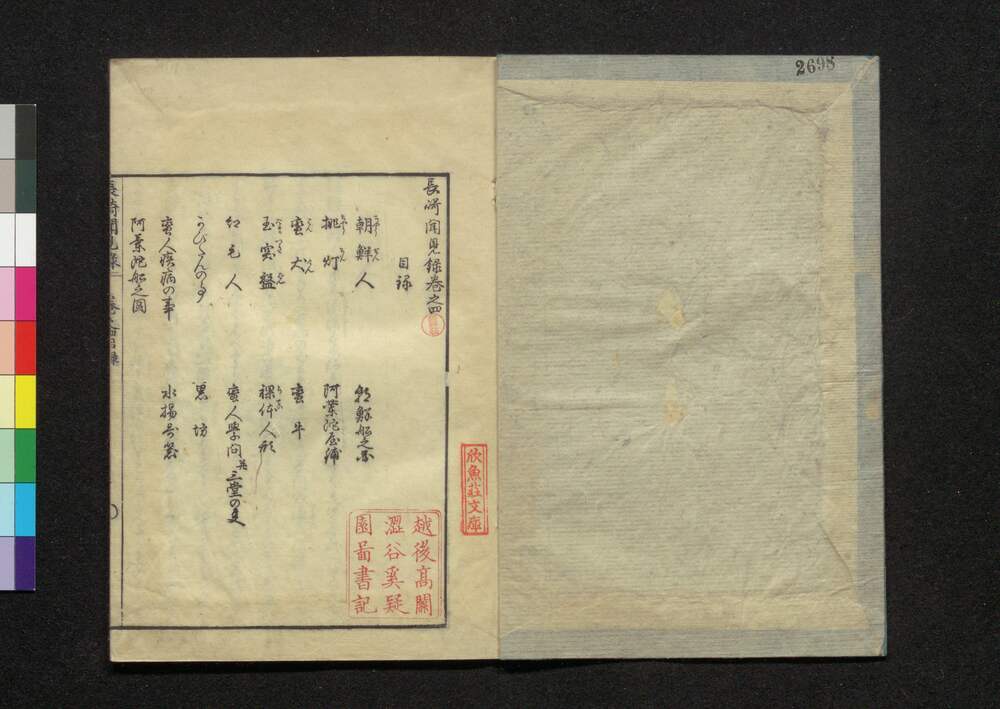 2698
長崎聞見録巻之四
目録
朝鮮人
朝鮮船之図
挑灯
阿蘭陀屋舗
蛮犬
蛮牛
玉突盤
裸体人形
紅毛人
蛮人学問并三堂の事
かびたんの事
黒坊
蛮人疾病の事
水揚器
阿蘭陀船之図
長崎聞見録
欣魚荘文庫
越後高關
澀谷奚疑
園啚書記